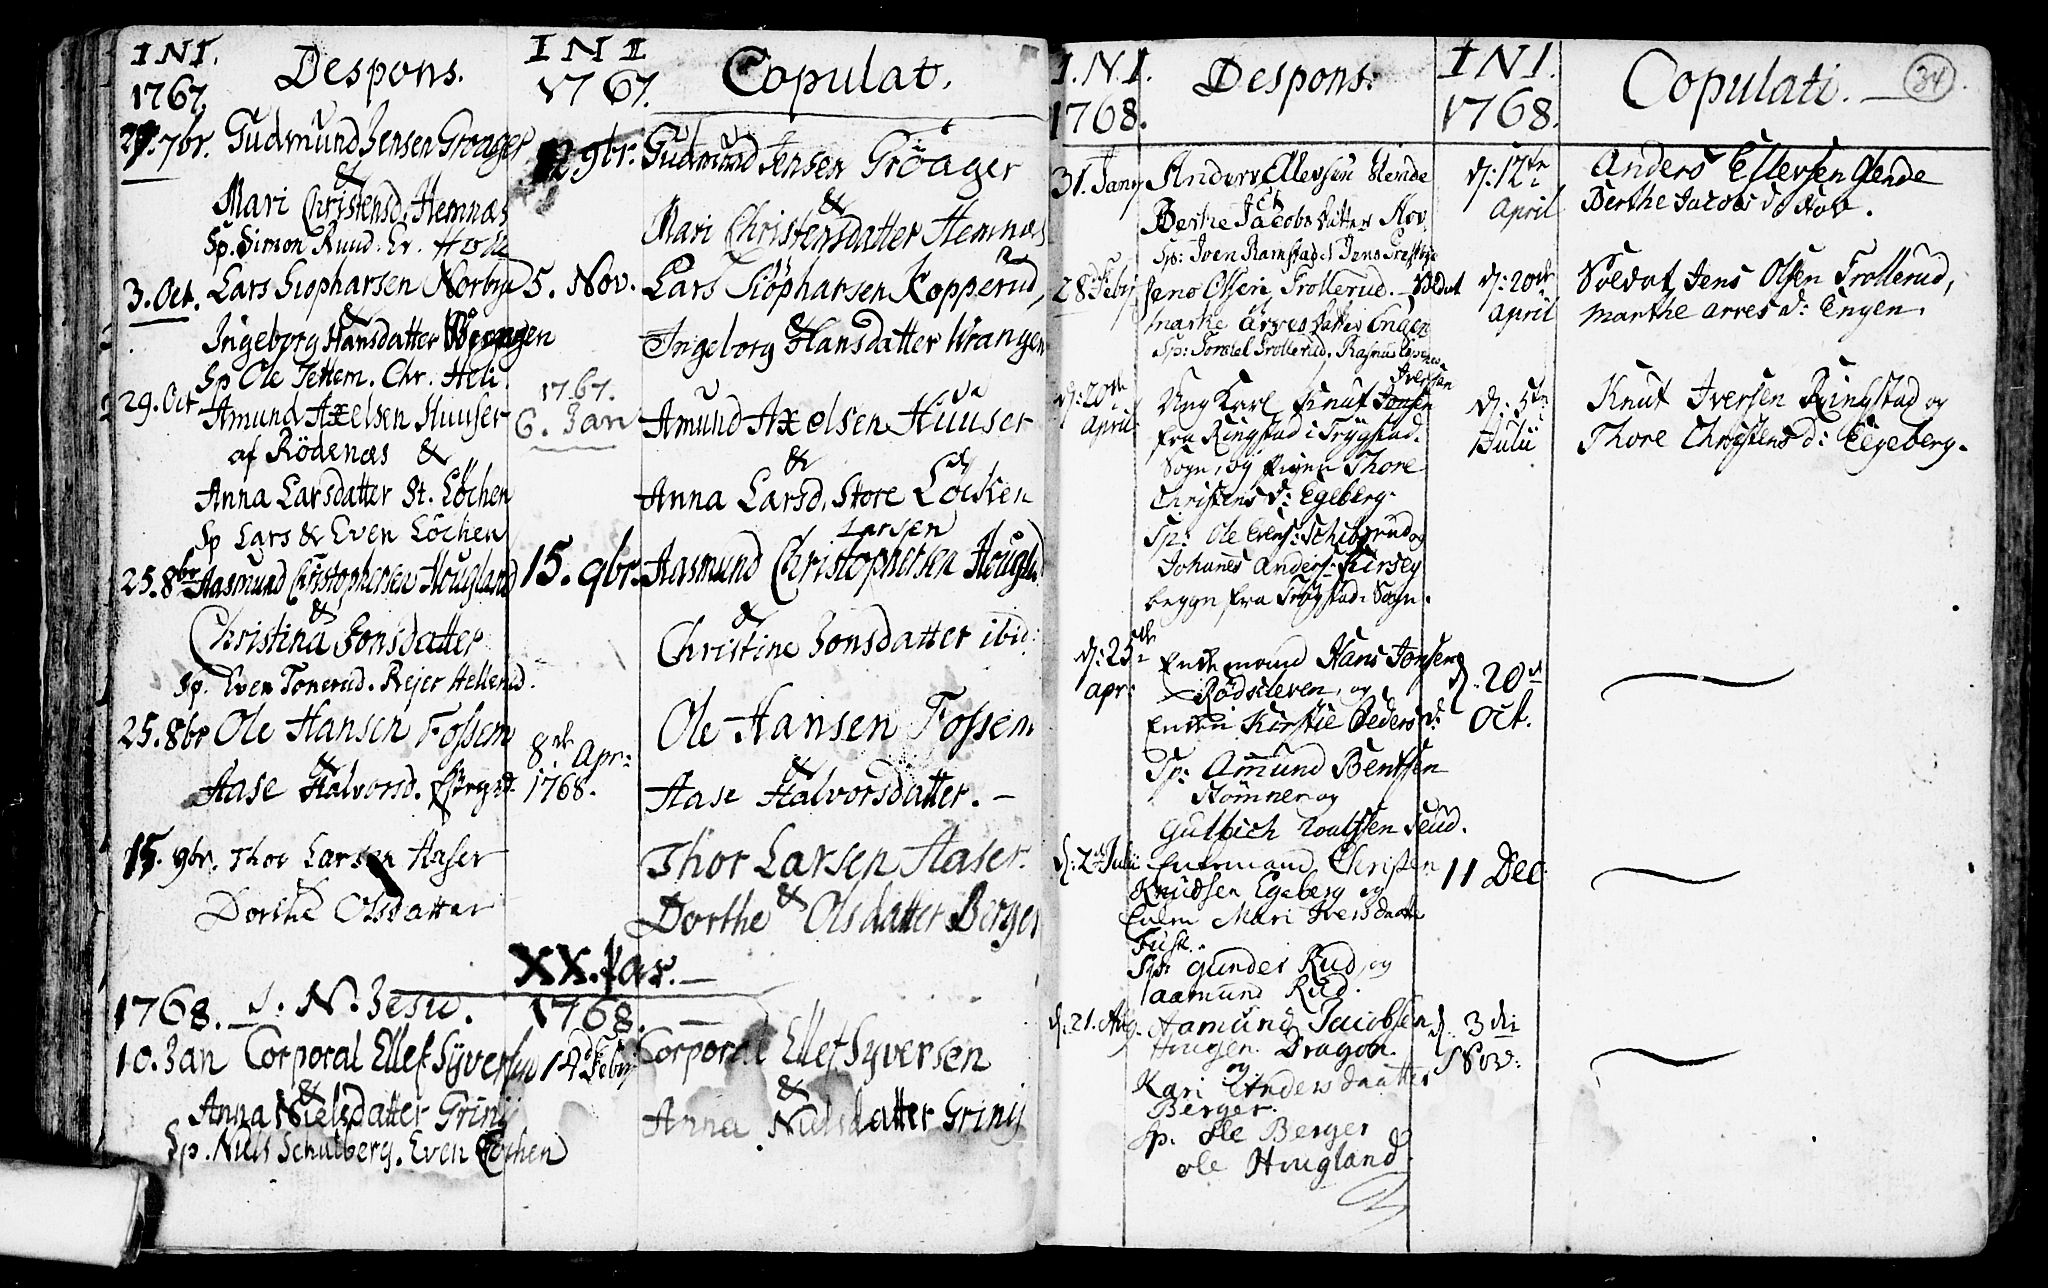 INI.
1767.
Despons.
INI
1767.
Copulat.
29. 7br. Gudmund Jensen Groager
&
Mari Christensd. Hemnæs
Sp. Simon Ruud. Er.
3. Oct. Lars Siopharsen Norbye
&
Ingeborg Hansdatter Wrangen
Sp Ole Tettem. Chr. Heli
29. Oct Amund Axelsen Huuser
af Rödenæs &
Anna Larsdatter St. Löchen
Sp Lars & Even Löchen
25. 8br Aasmund Christophersen Hougland
&
Christina Jonsdatter
Sp. Even Tonerud. Rejer Hellerud.
25. 8br Ole Hansen Fossem
&
Aase Halvorsd.
15. 9br. Thor Larsen Haser
&
Dorthe Olsdatter
1768. I. N. Jesu.
10. Jan Corporal Ellef Syversen
&
Anna Nielsdatter Grinij
Sp. Niels Schulberg. Even Löchen
12 9br. Gudmund Jensen Gröager
&
Mari Christensdatter Hemnæs
5. Nov. Lars Siöpharsen Kopperud,
&
Ingeborg Hansdatter Wrangen
1767.
6. Jan Amund Axelsen Huuser
&
Anna Larsd. Store Löcken
Larsen
15. 9br. Aasmund Christophersen Hougla
&
Christine Jonsdatter ibid:
Ole Hansen Fossem
8de Apr: &
1768. Aase Halvorsdatter. —
Thor Larsen Haser.
&
Dorthe Olsdatter Berger
XX. Par. —
1768. —
14 Febr Corporal Ellef Syversen
&
Anna Nielsdatter Grinij
I.N.I.
1768.
Despons:
INI.
1768.
Copulati. —
34
31. Janv Anders Ellevsen Glende
Berthe Jacobsdatter Hov.
Sp: Iven Ramstad & Jens
28 Febr Jens Olsen Trollerud. Soldat
Marthe Arvesdatter Engen
Sp: Torkel Trollerud. Rasmus
Iversen
d: 20de April Ung Karl Knut Jonsen
fra Ringstad i Trygstad
Sogn, og Pigen Thore
Christensd: Egeberg.
Sp: Ole Evers: Schibsrud og
Johanes Anders: Kirseg
begge fra Trygstad Sogn.
d: 25de apr: Enkemand Hans Jonsen
Rödskleven, og
Enken Kirstie Pedersd:
Sp: Amund Bentsen
Stömner og
Gulbich Roalfsen Seud.
d: 2de Julii Enkemand Christen
Knudsen Egeberg og
Enken Mari Iversdaatter
Tusk.
Sp: Gunder Rud, og
Aamund Rud.
d: 21. Aug. Aamund Jacobsen
Hougen. Dragon.
og
Kari Andersdaatter
Berger.
Sp. Ole Berger
Ole Hougland.
d: 12te April Anders Ellefsen Glende
Berthe Jacobsd Hov.
d: 20de April Soldat Jens Olsen Trollerud,
Marthe Arvesd: Engen.
d: 5te Julii Knut Iversen Ringstad og
Thore Christensd: Egeberg.
d: 20de Oct.
11 Dec.
d: 3die Nov: